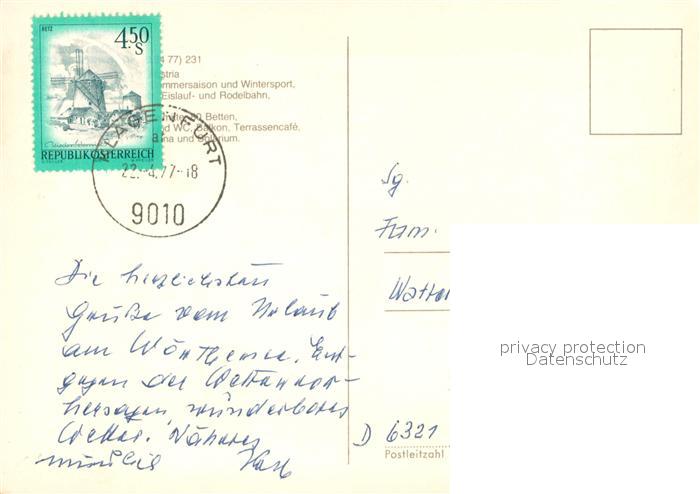 RETZ
4.50
S
REPUBLIK ÖSTERREICH
4 77) 231
stria
mmersaison und Wintersport,
Eislauf- und Rodelbahn,
Betten,
d WC, Balkon, Terrassencafé,
na und Solarium.
KLAGENFURT
22.-4.77-18
9010
Die herzlichsten
Grüße vom Urlaub
am Wörthersee. Ent-
gegen der Wettervor-
hersagen wunderbares
Wetter. Näheres
mündlich
Sg.
Fam.
D 6321
Postleitzahl
privacy protection
Datenschutz